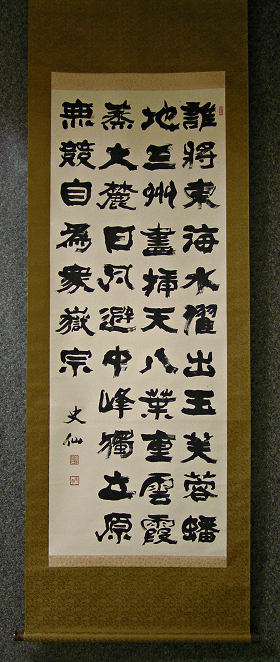 誰將東海水濯出玉芙蓉蟠
地三州盡挿天八葉重雲霞
蒸大麓日月避中峰獨立原
無競自為衆嶽宗
史仙